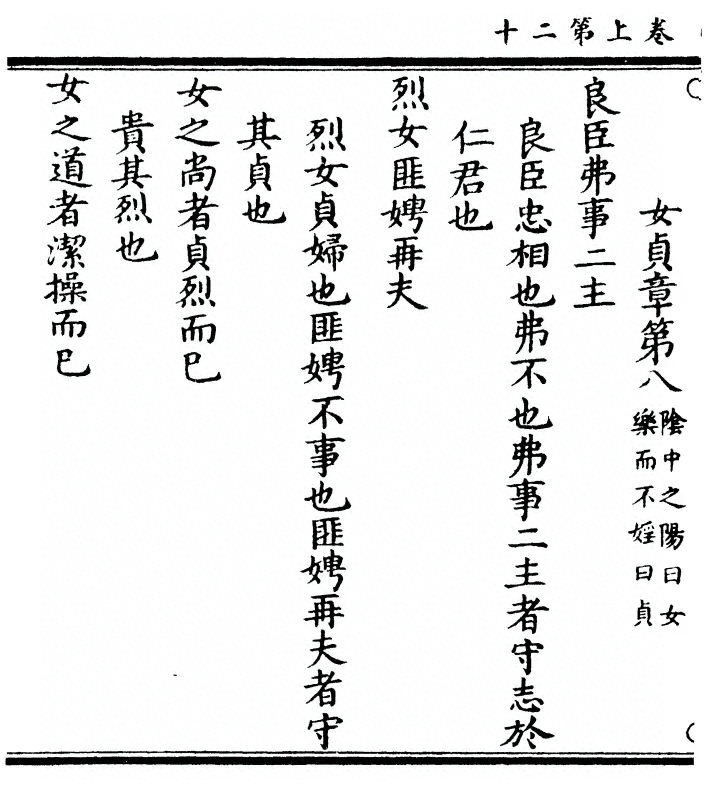 卷上第二十
女貞章第八 陰中之陽曰女
樂而不婬曰貞
良臣弗事二主
良臣忠相也弗不也弗事二主者守志於
仁君也
烈女匪娉再夫
烈女貞婦也匪娉不事也匪娉再夫者守
其貞也
女之尚者貞烈而已
貴其烈也
女之道者潔操而已